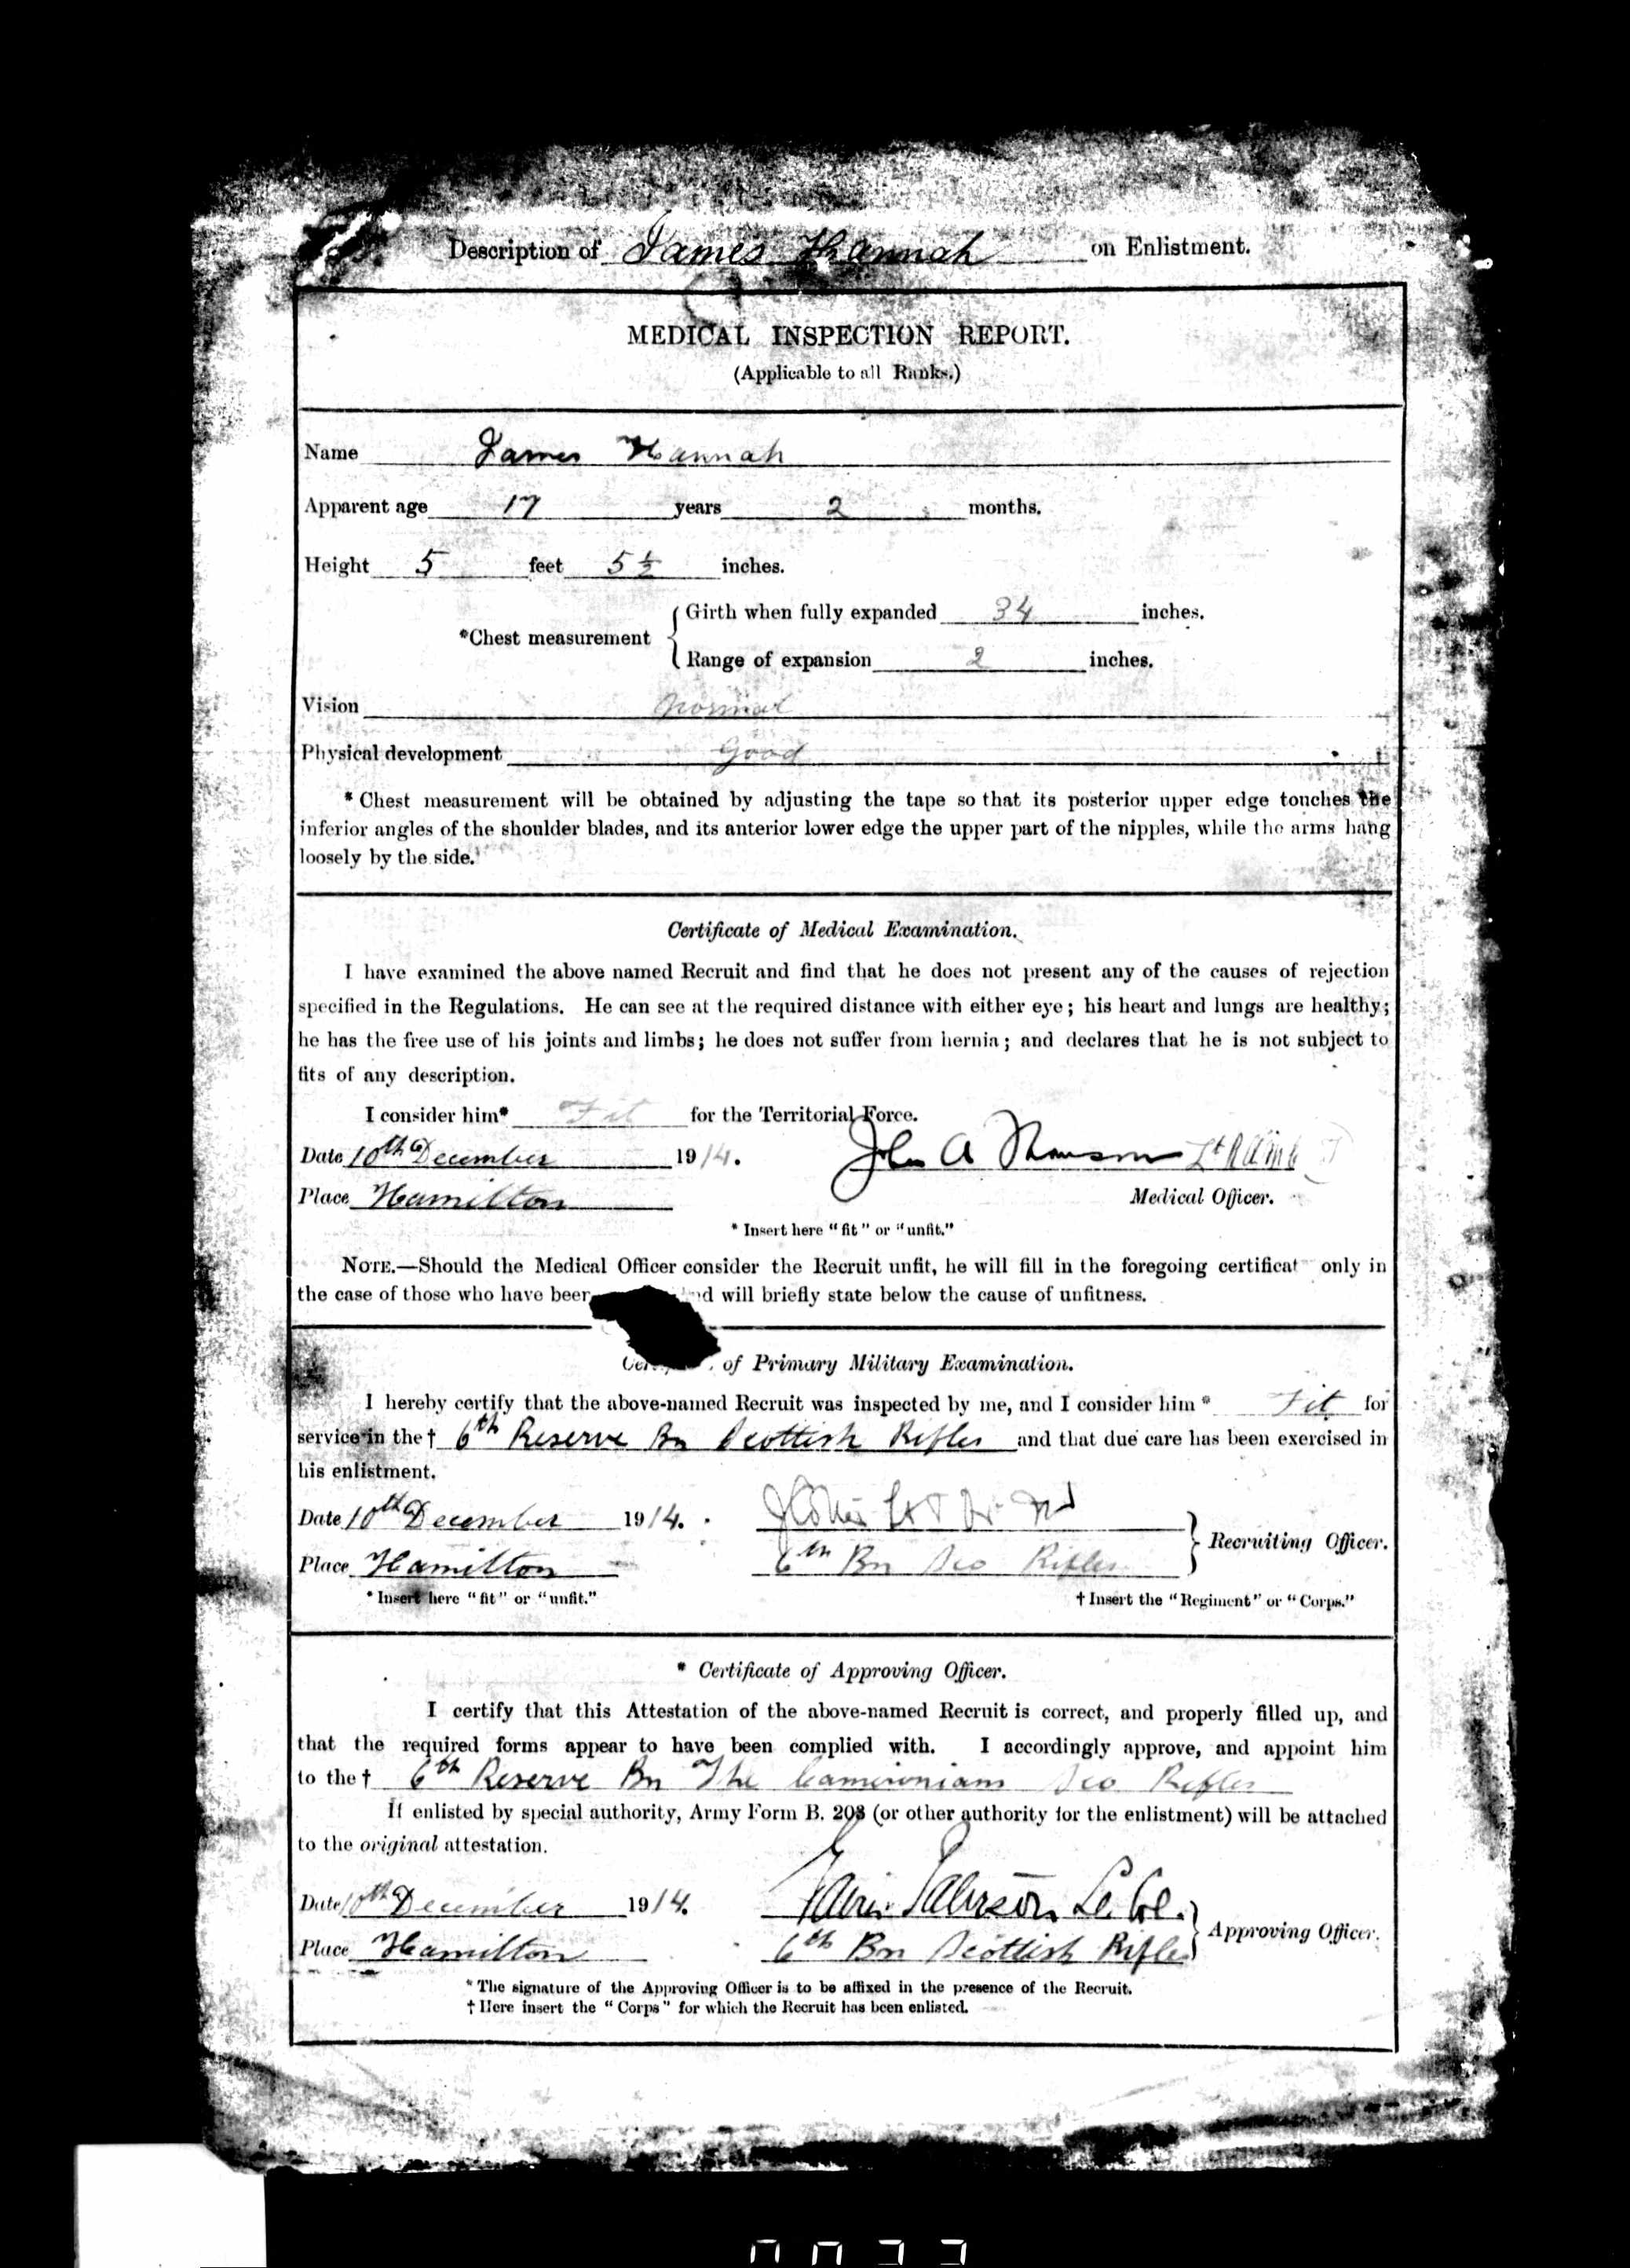 Description of James Hannah on Enlistment.
MEDICAL INSPECTION REPORT.
(Applicable to all Ranks.)
Name James Hannah
Apparent age 17 years 2 months.
Height 5 feet 5½ inches.
Girth when fully expanded 34 inches.
*Chest measurement
Range of expansion 2 inches.
Vision Normal
Physical development Good
* Chest measurement will be obtained by adjusting the tape so that its posterior upper edge touches the
inferior angles of the shoulder blades, and its anterior lower edge the upper part of the nipples, while the arms hang
loosely by the side.
Certificate of Medical Examination.
I have examined the above named Recruit and find that he does not present any of the causes of rejection
specified in the Regulations. He can see at the required distance with either eye; his heart and lungs are healthy;
he has the free use of his joints and limbs; he does not suffer from hernia; and declares that he is not subject to
fits of any description.
I consider him* Fit for the Territorial Force.
Date 10th December 1914. John A Thomson Lt
Place Hamilton Medical Officer.
* Insert here "fit" or "unfit."
NOTE.—Should the Medical Officer consider the Recruit unfit, he will fill in the foregoing certificat only in
the case of those who have been will briefly state below the cause of unfitness.
of Primary Military Examination.
I hereby certify that the above-named Recruit was inspected by me, and I consider him* Fit for
service in the † 6th Reserve Bn Scottish Rifles and that due care has been exercised in
his enlistment.
Date 10th December 1914.
Recruiting Officer.
Place Hamilton 6th Bn Sco Rifles
* Insert here "fit" or "unfit." † Insert the "Regiment" or "Corps."
* Certificate of Approving Officer.
I certify that this Attestation of the above-named Recruit is correct, and properly filled up, and
that the required forms appear to have been complied with. I accordingly approve, and appoint him
to the † 6th Reserve Bn The Cameronians Sco Rifles
If enlisted by special authority, Army Form B. 203 (or other authority for the enlistment) will be attached
to the original attestation.
Date 10th December 1914.
Approving Officer.
Place Hamilton 6th Bn Scottish Rifles
* The signature of the Approving Officer is to be affixed in the presence of the Recruit.
† Here insert the "Corps" for which the Recruit has been enlisted.